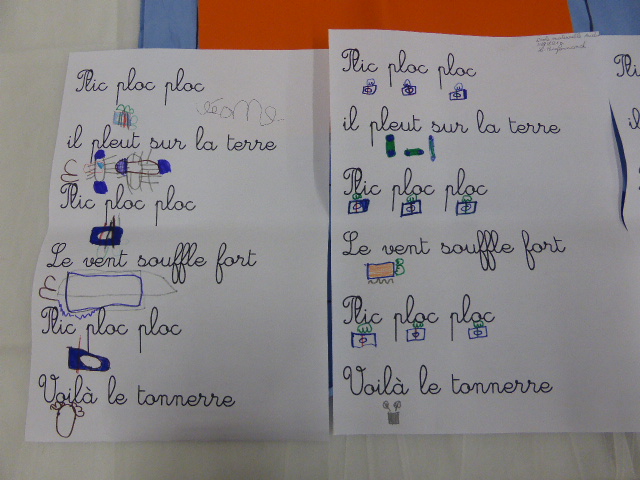 Plic ploc ploc
il pleut sur la terre
Plic ploc ploc
Le vent souffle fort
Plic ploc ploc
Voilà le tonnerre
Plic ploc ploc
il pleut sur la terre
Plic ploc ploc
Le vent souffle fort
Plic ploc ploc
Voilà le tonnerre